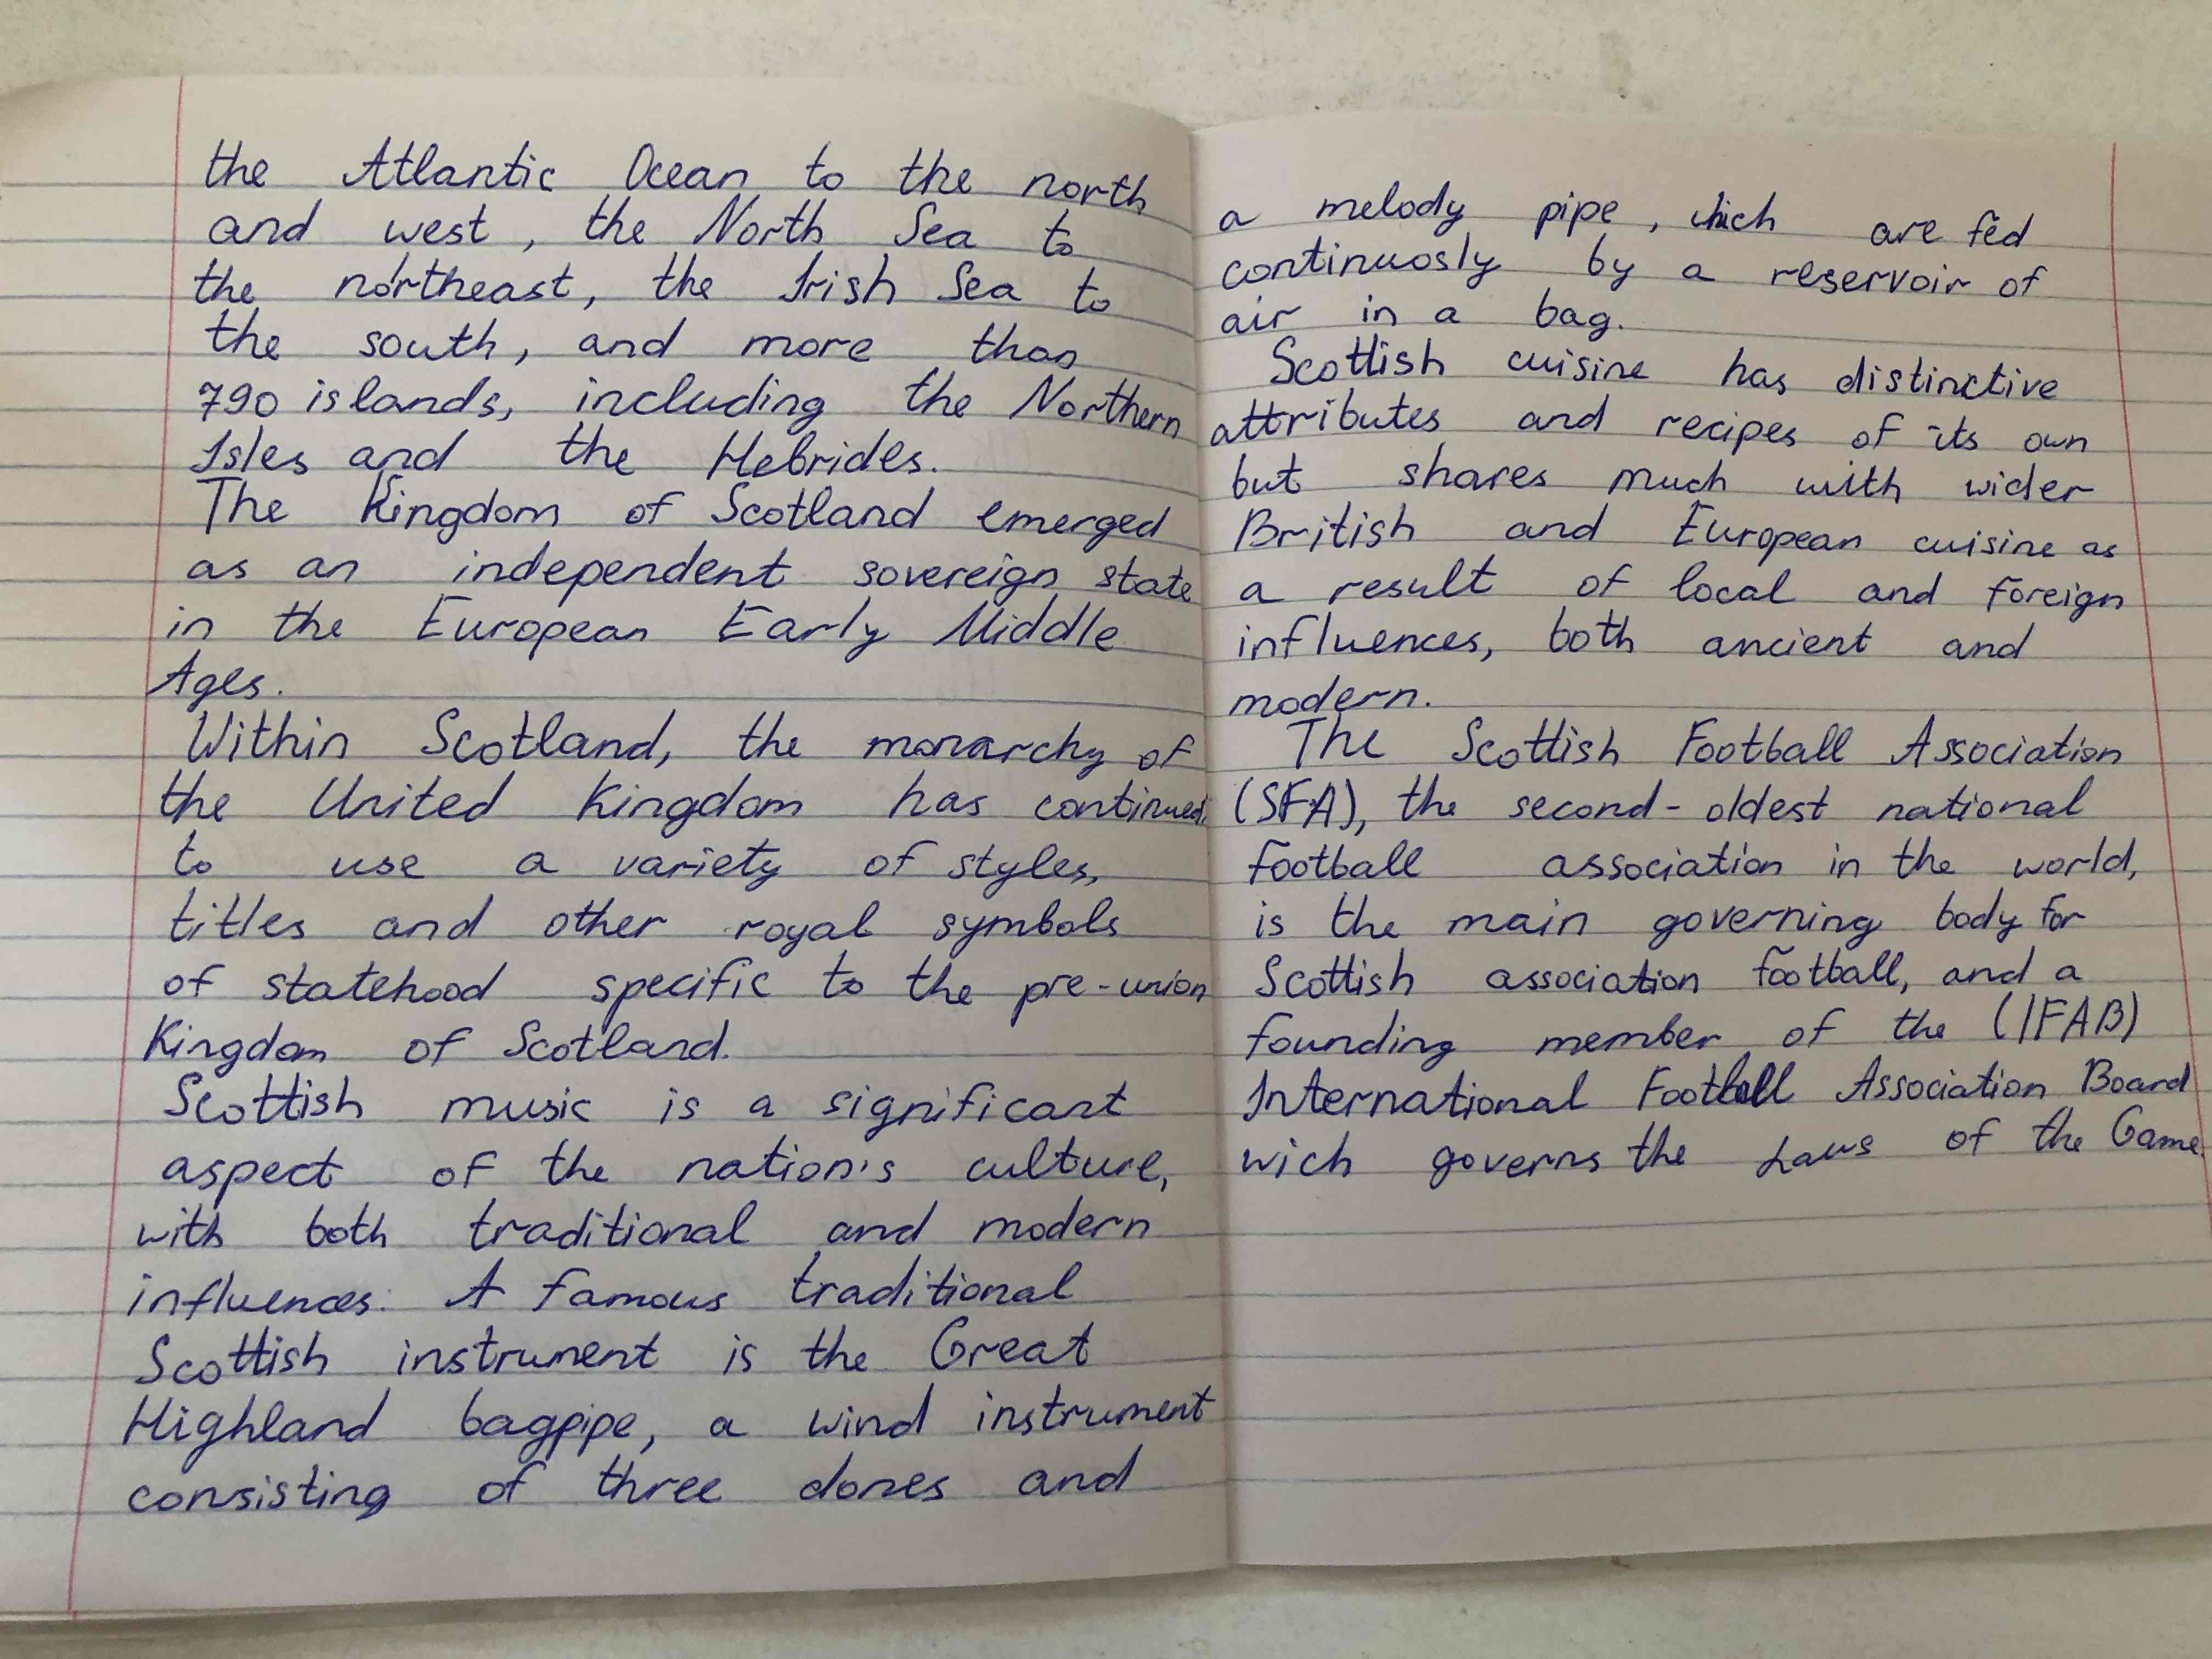 the Atlantic Ocean to the north
and west, the North Sea to
the northeast, the Irish Sea to
the south, and more than
790 islands, including the Northern
Isles and the Hebrides.
The Kingdom of Scotland emerged
as an independent sovereign state
in the European Early Middle
Ages.
Within Scotland, the monarchy of
the United Kingdom has continued
to use a variety of styles,
titles and other royal symbols
of statehood specific to the pre-union
Kingdom of Scotland.
Scottish music is a significant
aspect of the nation's culture,
with both traditional and modern
influences. A famous traditional
Scottish instrument is the Great
Highland bagpipe, a wind instrument
consisting of three dones and
a melody pipe, which are fed
continuosly by a reservoir of
air in a bag.
Scottish cuisine has distinctive
attributes and recipes of its own
but shares much with wider
British and European cuisine as
a result of local and foreign
influences, both ancient and
modern.
The Scottish Football Association
(SFA), the second-oldest national
football association in the world,
is the main governing body for
Scottish association football, and a
founding member of the (IFAB)
International Football Association Board
wich governs the Laws of the Game.